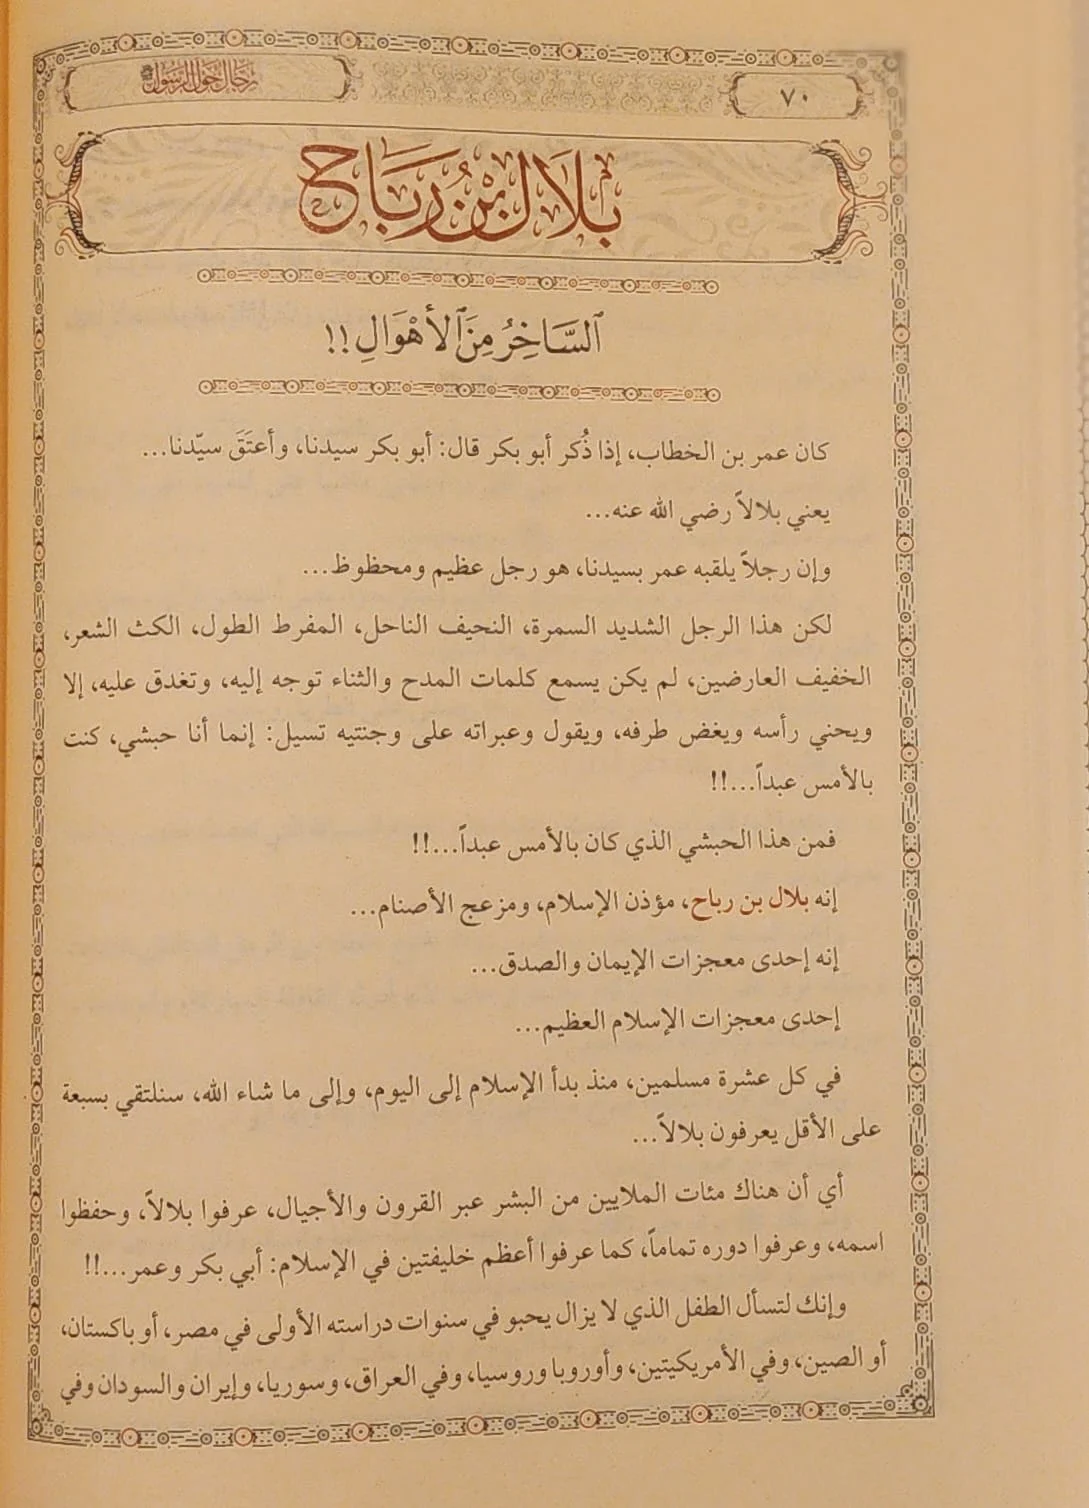 رجال حول الرسول ﷺ
٧٠
بِلَالُ بْنُ رَبَاح
ٱلسَّاخِرُ مِنَ ٱلأَهْوَالِ !!
كان عمر بن الخطاب، إذا ذُكر أبو بكر قال: أبو بكر سيدنا، وأعتَقَ سيّدنا...
يعني بلالاً رضي الله عنه...
وإن رجلاً يلقبه عمر بسيدنا، هو رجل عظيم ومحظوظ...
لكن هذا الرجل الشديد السمرة، النحيف الناحل، المفرط الطول، الكث الشعر،
الخفيف العارضين، لم يكن يسمع كلمات المدح والثناء توجه إليه، وتغدق عليه، إلا
ويحني رأسه ويغض طرفه، ويقول وعبراته على وجنتيه تسيل: إنما أنا حبشي، كنت
بالأمس عبداً...!!
فمن هذا الحبشي الذي كان بالأمس عبداً...!!
إنه بلال بن رباح، مؤذن الإسلام، ومزعج الأصنام...
إنه إحدى معجزات الإيمان والصدق...
إحدى معجزات الإسلام العظيم...
في كل عشرة مسلمين، منذ بدأ الإسلام إلى اليوم، وإلى ما شاء الله، سنلتقي بسبعة
على الأقل يعرفون بلالاً...
أي أن هناك مئات الملايين من البشر عبر القرون والأجيال، عرفوا بلالاً، وحفظوا
اسمه، وعرفوا دوره تماماً، كما عرفوا أعظم خليفتين في الإسلام: أبي بكر وعمر...!!
وإنك لتسأل الطفل الذي لا يزال يحبو في سنوات دراسته الأولى في مصر، أو باكستان،
أو الصين، وفي الأمريكيتين، وأوروبا وروسيا، وفي العراق، وسوريا، وإيران والسودان وفي